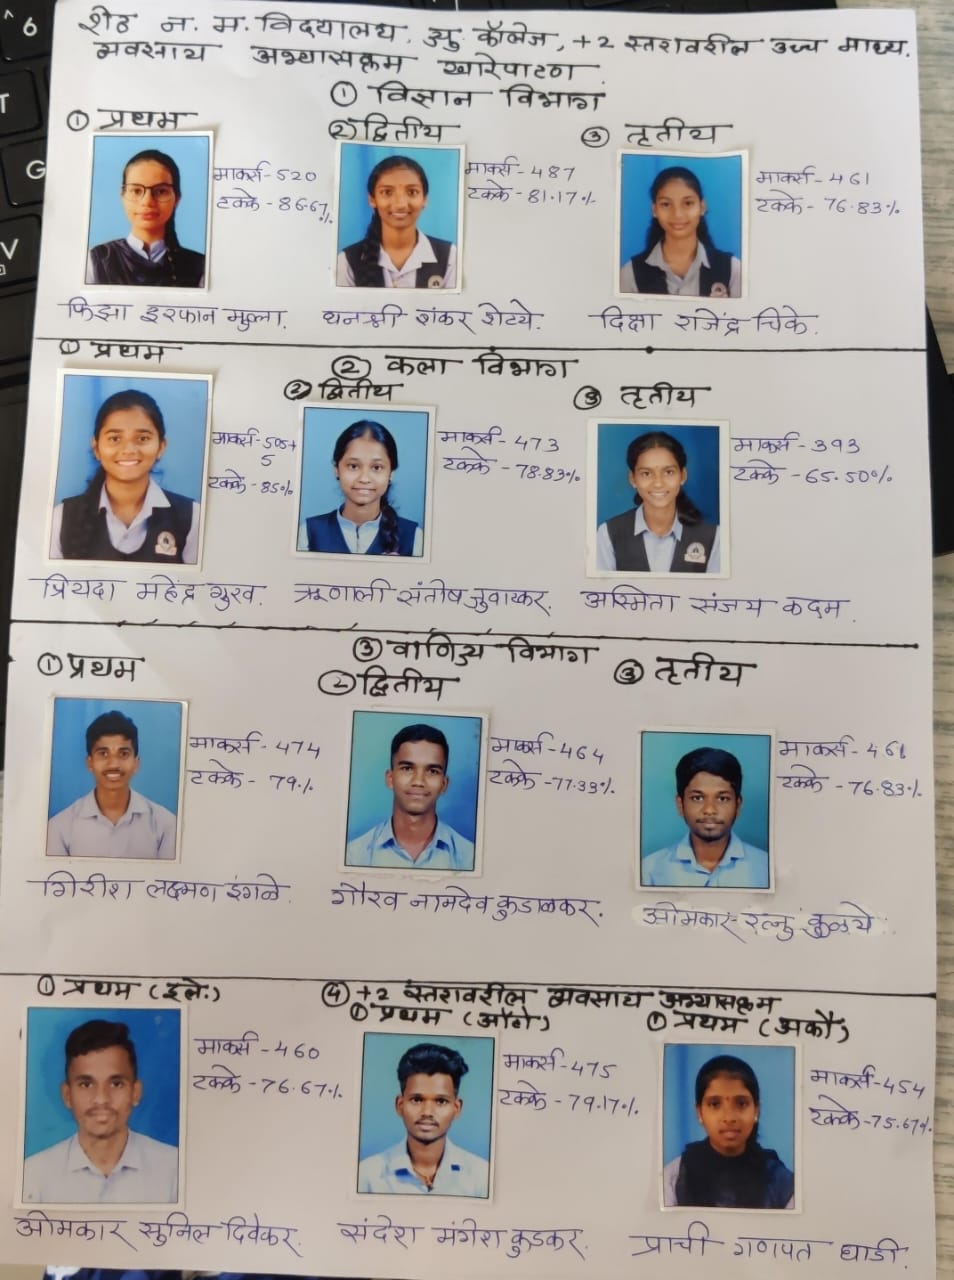 शेठ न. म. विद्यालय, ज्यु. कॉलेज, +2 स्तरावरील उच्च माध्य.
व्यवसाय अभ्यासक्रम खारेपाटण
① विज्ञान विभाग
① प्रथम
② द्वितीय
③ तृतीय
मार्क्स - 520
टक्के - 86.67%
मार्क्स - 487
टक्के - 81.17%
मार्क्स - 461
टक्के - 76.83%
फिझा इरफान मुल्ला.
धनश्री शंकर शेट्ये.
दिक्षा राजेंद्र चिके.
② कला विभाग
① प्रथम
② द्वितीय
③ तृतीय
मार्क्स - 505+
5
टक्के - 85%
मार्क्स - 473
टक्के - 78.83%
मार्क्स - 393
टक्के - 65.50%
प्रियदा महेंद्र गुरव.
ऋणाली संतोष जुवाटकर.
अस्मिता संजय कदम.
③ वाणिज्य विभाग
① प्रथम
② द्वितीय
③ तृतीय
मार्क्स - 474
टक्के - 79%
मार्क्स - 464
टक्के - 77.33%
मार्क्स - 461
टक्के - 76.83%
गिरीश लक्ष्मण इंगळे.
गौरव नामदेव कुडाळकर.
ओमकार रत्नु कुळ्ये.
④ +2 स्तरावरील व्यवसाय अभ्यासक्रम
① प्रथम (इले:)
① प्रथम (ऑगे)
① प्रथम (अकौ)
मार्क्स - 460
टक्के - 76.67%
मार्क्स - 475
टक्के - 79.17%
मार्क्स - 454
टक्के - 75.67%
ओमकार सुनिल दिवेकर.
संदेश मंगेश कुडकर.
प्राची गणपत घाडी.
6
T
G
V